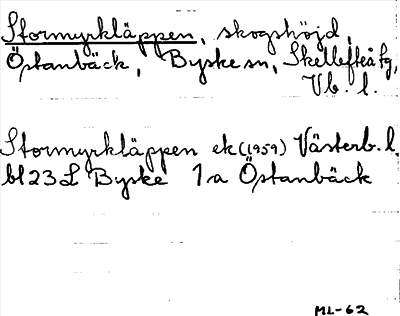 Stormyrkläppen, skogshöjd,
Östanbäck, Byske sn, Skellefteå tg,
Vb. l.
Stormyrkläppen ek (1959) Västerb. l.
bl 23 L Byske 1a Östanbäck
ML-62